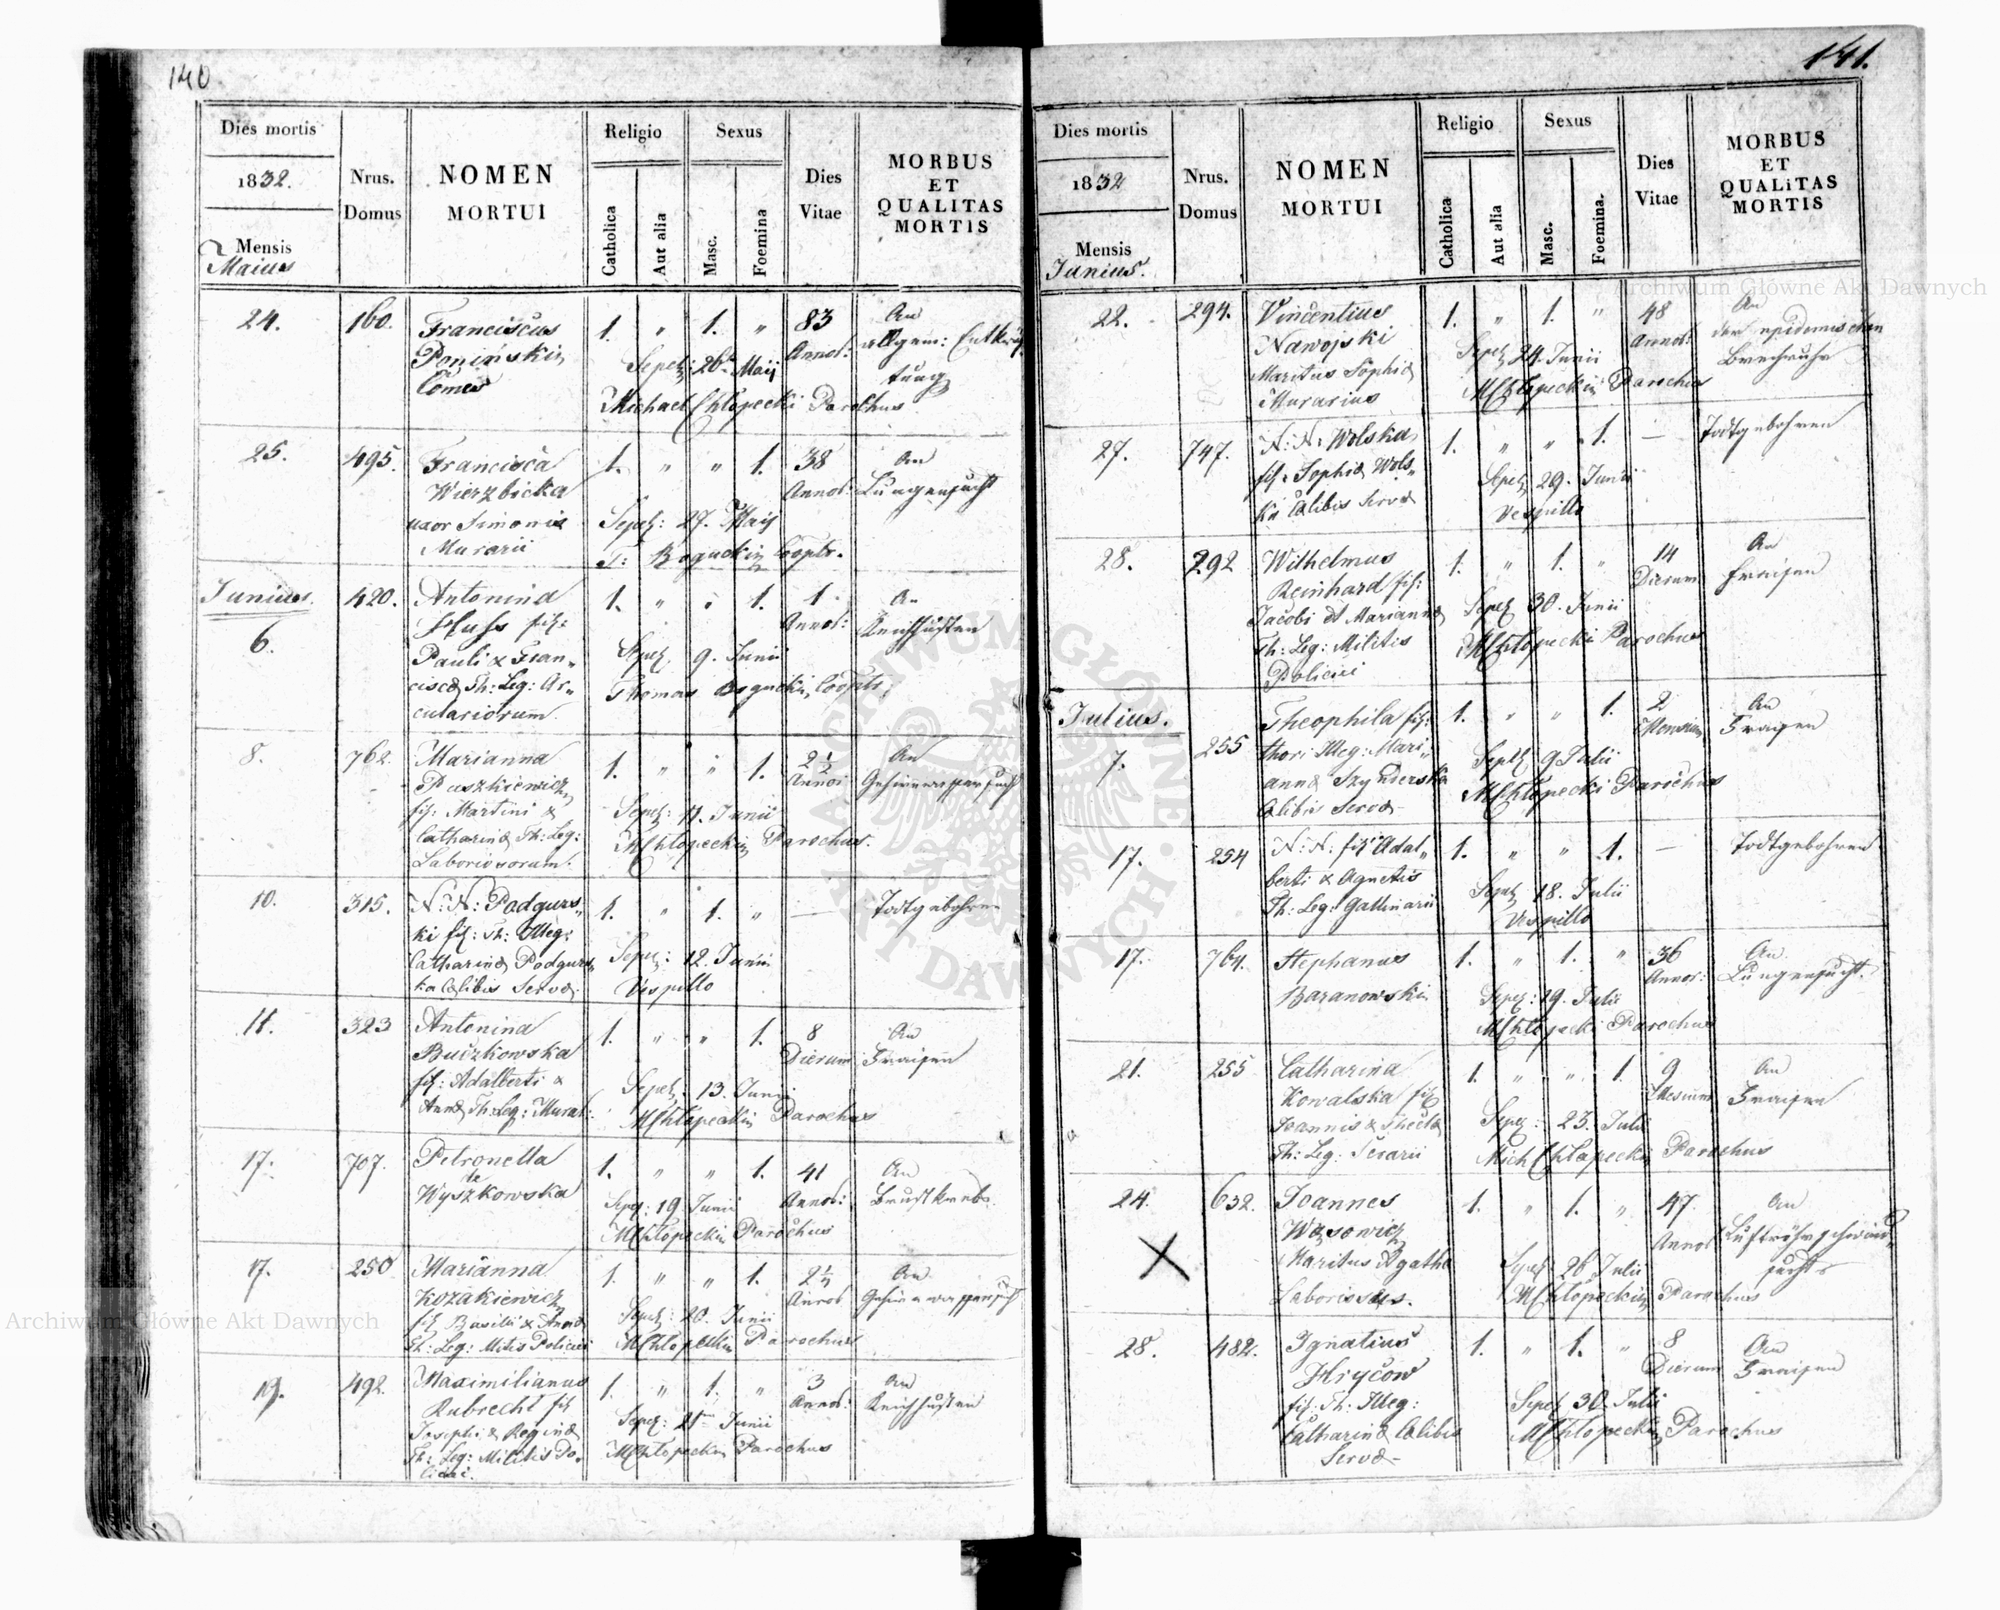 140
Dies mortis
1832.
Mensis
Maius
Nrus.
Domus
NOMEN
MORTUI
Religio
Catholica
Aut alia
Sexus
Masc.
Foemina
Dies
Vitae
MORBUS
ET
QUALITAS
MORTIS
24.
160.
Franciscus
Poniński
Comes
1. " 1. "
83
Annor:
An
allgem: Entkräf
tung
Sepel: 26. Maij
Michael Chłopecki Parochus
25.
495.
Francisca
Wierzbicka
uxor Simonis
Murarii
1. " " 1.
38
Annor:
An
Lungensucht
Sepel: 27. Maij
T: Bogucki Cooptr.
Junius.
6.
420.
Antonina
Huss fil:
Pauli & Fran„
ciscæ Th: Leg: Ar„
culariorum.
1. " " 1.
1
Annor:
An
Keichhusten
Sepel 9. Junii
Thomas Bogucki, Cooptr,
8.
762.
Marianna
Puszkiewicz
fil: Martini &
Catharinæ Th: Leg:
Laboriosorum.
1. " " 1.
2 1/2
Annor
An
Gehirnwassersucht
Sepel: 11. Junii
MChłopecki Parochus.
10.
315.
N: N: Podgurs„
ki fil: Th: Illeg:
Catharinæ Podgurs„
ka Cælibis Servæ.
1. " 1. "
—
Todtgebohren
Sepel: 12. Junii
Vespillo
11.
323
Antonina
Buczkowska
fil: Adalberti &
Annæ Th: Leg: Murar:
1. " " 1.
8
Dierum
An
Fraisen
Sepel: 13. Junii
MChłopecki Parochus
17.
707.
Petronella
de
Wyszkowska
1. " " 1.
41
Annor:
An
Brustkrebs
Sepel: 19 Junii
MChłopecki Parochus
17.
250
Marianna
Kozakiewicz
fil Basilii & Annæ
Th: Leg: Militis Policiei
1. " " 1.
Annor
An
Gehirnwassersucht
Sepel: 20. Junii
MChłopecki Parochus
19.
492.
Maximilianus
Rubrecht fil
Josephi & Reginæ
Th: Leg: Militis Po„
liciei.
1. " 1. "
3
Annor:
An
Keichhusten
Sepel: 21. Junii
MChłopecki Parochus
141.
Dies mortis
1832
Mensis
Junius.
Nrus.
Domus
NOMEN
MORTUI
Religio
Catholica
Aut alia
Sexus
Masc.
Foemina.
Dies
Vitae
MORBUS
ET
QUALITAS
MORTIS
22.
294.
Vincentius
Nawojski
Maritus Sophiæ
Murarius
1. " 1. "
48
Annor:
An
der epidemischen
Brechruhr
Sepel 24. Junii
MChłopecki Parochus
27.
747.
N: N: Wolska
fil: Sophiæ Wols„
ka Cælibis Servæ
1. " " 1.
—
Todtgebohren
Sepel 29. Junii
Vespillo
28.
292
Wilhelmus
Reinhard fil:
Jacobi et Mariannæ
Th: Leg: Militis
Policiei
1. " 1. "
14
Dierum
An
Fraisen
Sepel 30. Junii
MChłopecki Parochus
Julius.
7.
255
Theophila fil:
thori Illeg: Mari„
annæ
Cælibis Servæ
1. " " 1.
2
Mensium
An
Fraisen
Sepel 9 Julii
MChłopecki Parochus
17.
254
N: N: fil Adal„
berti & Agnetis
Th: Leg: Gallinarii
1. " " 1.
—
Todtgebohren
Sepel 18. Julii
Vespillo
17.
764.
Stephanus
Baranowski
1. " 1. "
36
Annor:
An
Lungensucht.
Sepel: 19. Julii
MChłopecki Parochus
21.
255
Catharina
Kowalska fil
Joannis & Theclæ
Th: Leg:
1. " " 1.
9
Mensium
An
Fraisen
Sepel: 23. Julii
Mich Chłopecki Parochus
24.
632.
Joannes
Wąsowicz
Maritus Agathæ
Laboriosus.
1. " 1. "
47.
Annor
An
Luftröhrschwind„
sucht
Sepel 26. Julii
MChłopecki Parochus
28.
482.
Ignatius
Hrycow
fil: Th: Illeg:
Catharinæ Cælibis
Servæ
1. " 1. "
8
Dierum
An
Fraisen
Sepel 30. Julii
MChłopecki Parochus
Archiwum Główne Akt Dawnych
Archiwum Główne Akt Dawnych
ARCHIWUM GŁÓWNE
AKT DAWNYCH